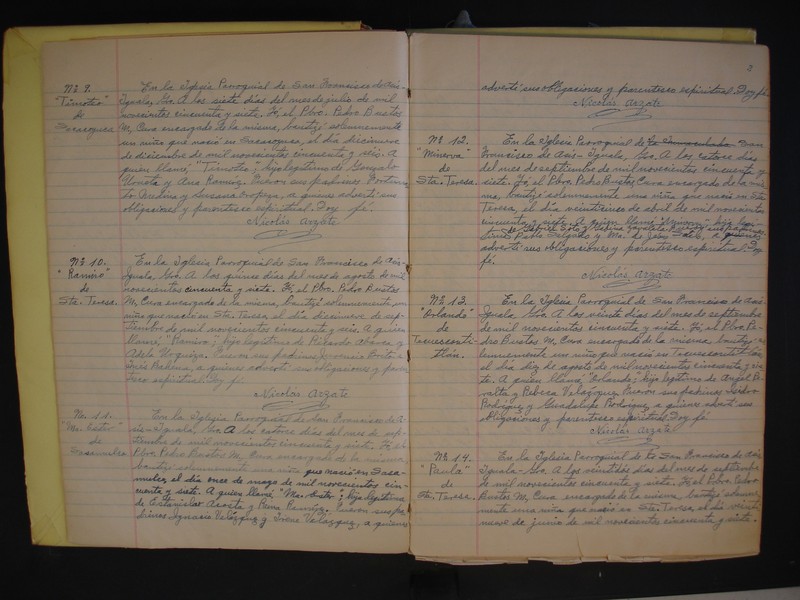 Nº 9.
"Timoteo"
de
En la Iglesia Parroquial de San Francisco de Asis-
Iguala, Gro. A los siete días del mes de julio de mil
novecientos cincuenta y siete. Yó, el Pbro. Pedro Bustos
M, Cura encargado de la misma, bautizé solemnemente
un niño que nació en el día diecinueve
de diciembre de mil novecientos cincuenta y seis. A
quien llamé, "Timoteo", hijo legítimo de Gonzalo
y Ana Ramírez. Fueron sus padrinos
Medina y Susana a quienes advertí sus
obligaciones y parentesco espiritual. Doy fé.
Nicolás Arzate
Nº 10.
"Ramiro"
de
Sta. Teresa.
En la Iglesia Parroquial de San Francisco de Asis-
Iguala, Gro. A los quince días del mes de agosto de mil
novecientos cincuenta y siete. Yó, el Pbro. Pedro Bustos
M, Cura encargado de la misma, bautizé solemnemente un
niño que nació en Sta. Teresa, el día diecinueve de sep-
tiembre de mil novecientos cincuenta y seis. A quien
llamé "Ramiro"; hijo legítimo de Ricardo y
Adela Fueron sus padrinos
Inés a quienes advertí sus obligaciones y paren-
tesco espiritual. Doy fé.
Nicolás Arzate
Nº 11.
"Ma. Ester"
de
En la Iglesia Parroquial de San Francisco de A-
sis-Iguala, Gro. A los catorce días del mes de sep-
tiembre de mil novecientos cincuenta y siete. Yó, el
Pbro. Pedro Bustos M, Cura encargado de la misma,
bautizé solemnemente una niña que nació en
el día once de mayo de mil novecientos cin-
cuenta y siete. A quien llamé "Ma. Ester"; hija legítima
de Estanislao Acosta y Ramírez. Fueron sus pa-
drinos Ignacio Velázquez y Irene Velázquez, a quienes
2
advertí sus obligaciones y parentesco espiritual. Doy fé.
Nicolás Arzate
Nº 12.
"Minerva"
de
Sta. Teresa.
En la Iglesia Parroquial de la Inmaculada San
Francisco de Asis-Iguala, Gro. A los catorce días
del mes de septiembre de mil novecientos cincuenta y
siete. Yó, el Pbro. Pedro Bustos Cura encargado de la mis-
ma, bautizé solemnemente una niña que nació en Sta.
Teresa, el día veinticinco de abril de mil novecientos
cincuenta y siete. A quien llamé Minerva; hija
de
Pablo Salgado y Ma. de Jesús a quienes
advertí sus obligaciones y parentesco espiritual. Doy
fé.
Nicolás Arzate
Nº 13.
"Orlando"
de
En la Iglesia Parroquial de San Francisco de Asis
Iguala, Gro. A los veinte días del mes de septiembre
de mil novecientos cincuenta y siete. Yó, el Pbro. Pe-
dro Bustos M, Cura encargado de la misma, bautizé so-
lemnemente un niño que nació en
el día diez de agosto de mil novecientos cincuenta y sie-
te. A quien llamé "Orlando", hijo legítimo de Angel
y Rebeca Velázquez. Fueron sus padrinos
Rodríguez y Guadalupe Rodríguez, a quienes advertí sus
obligaciones y parentesco espiritual. Doy fé.
Nicolás Arzate
Nº 14.
"Paula"
de
Sta. Teresa.
En la Iglesia Parroquial de San Francisco de Asis
Iguala-Gro. A los veintidós días del mes de septiembre
de mil novecientos cincuenta y siete. Yó, el Pbro. Pedro
Bustos M, Cura encargado de la misma, bautizé solemne-
mente una niña que nació en Sta. Teresa, el día veinti-
nueve de junio de mil novecientos cincuenta y siete.